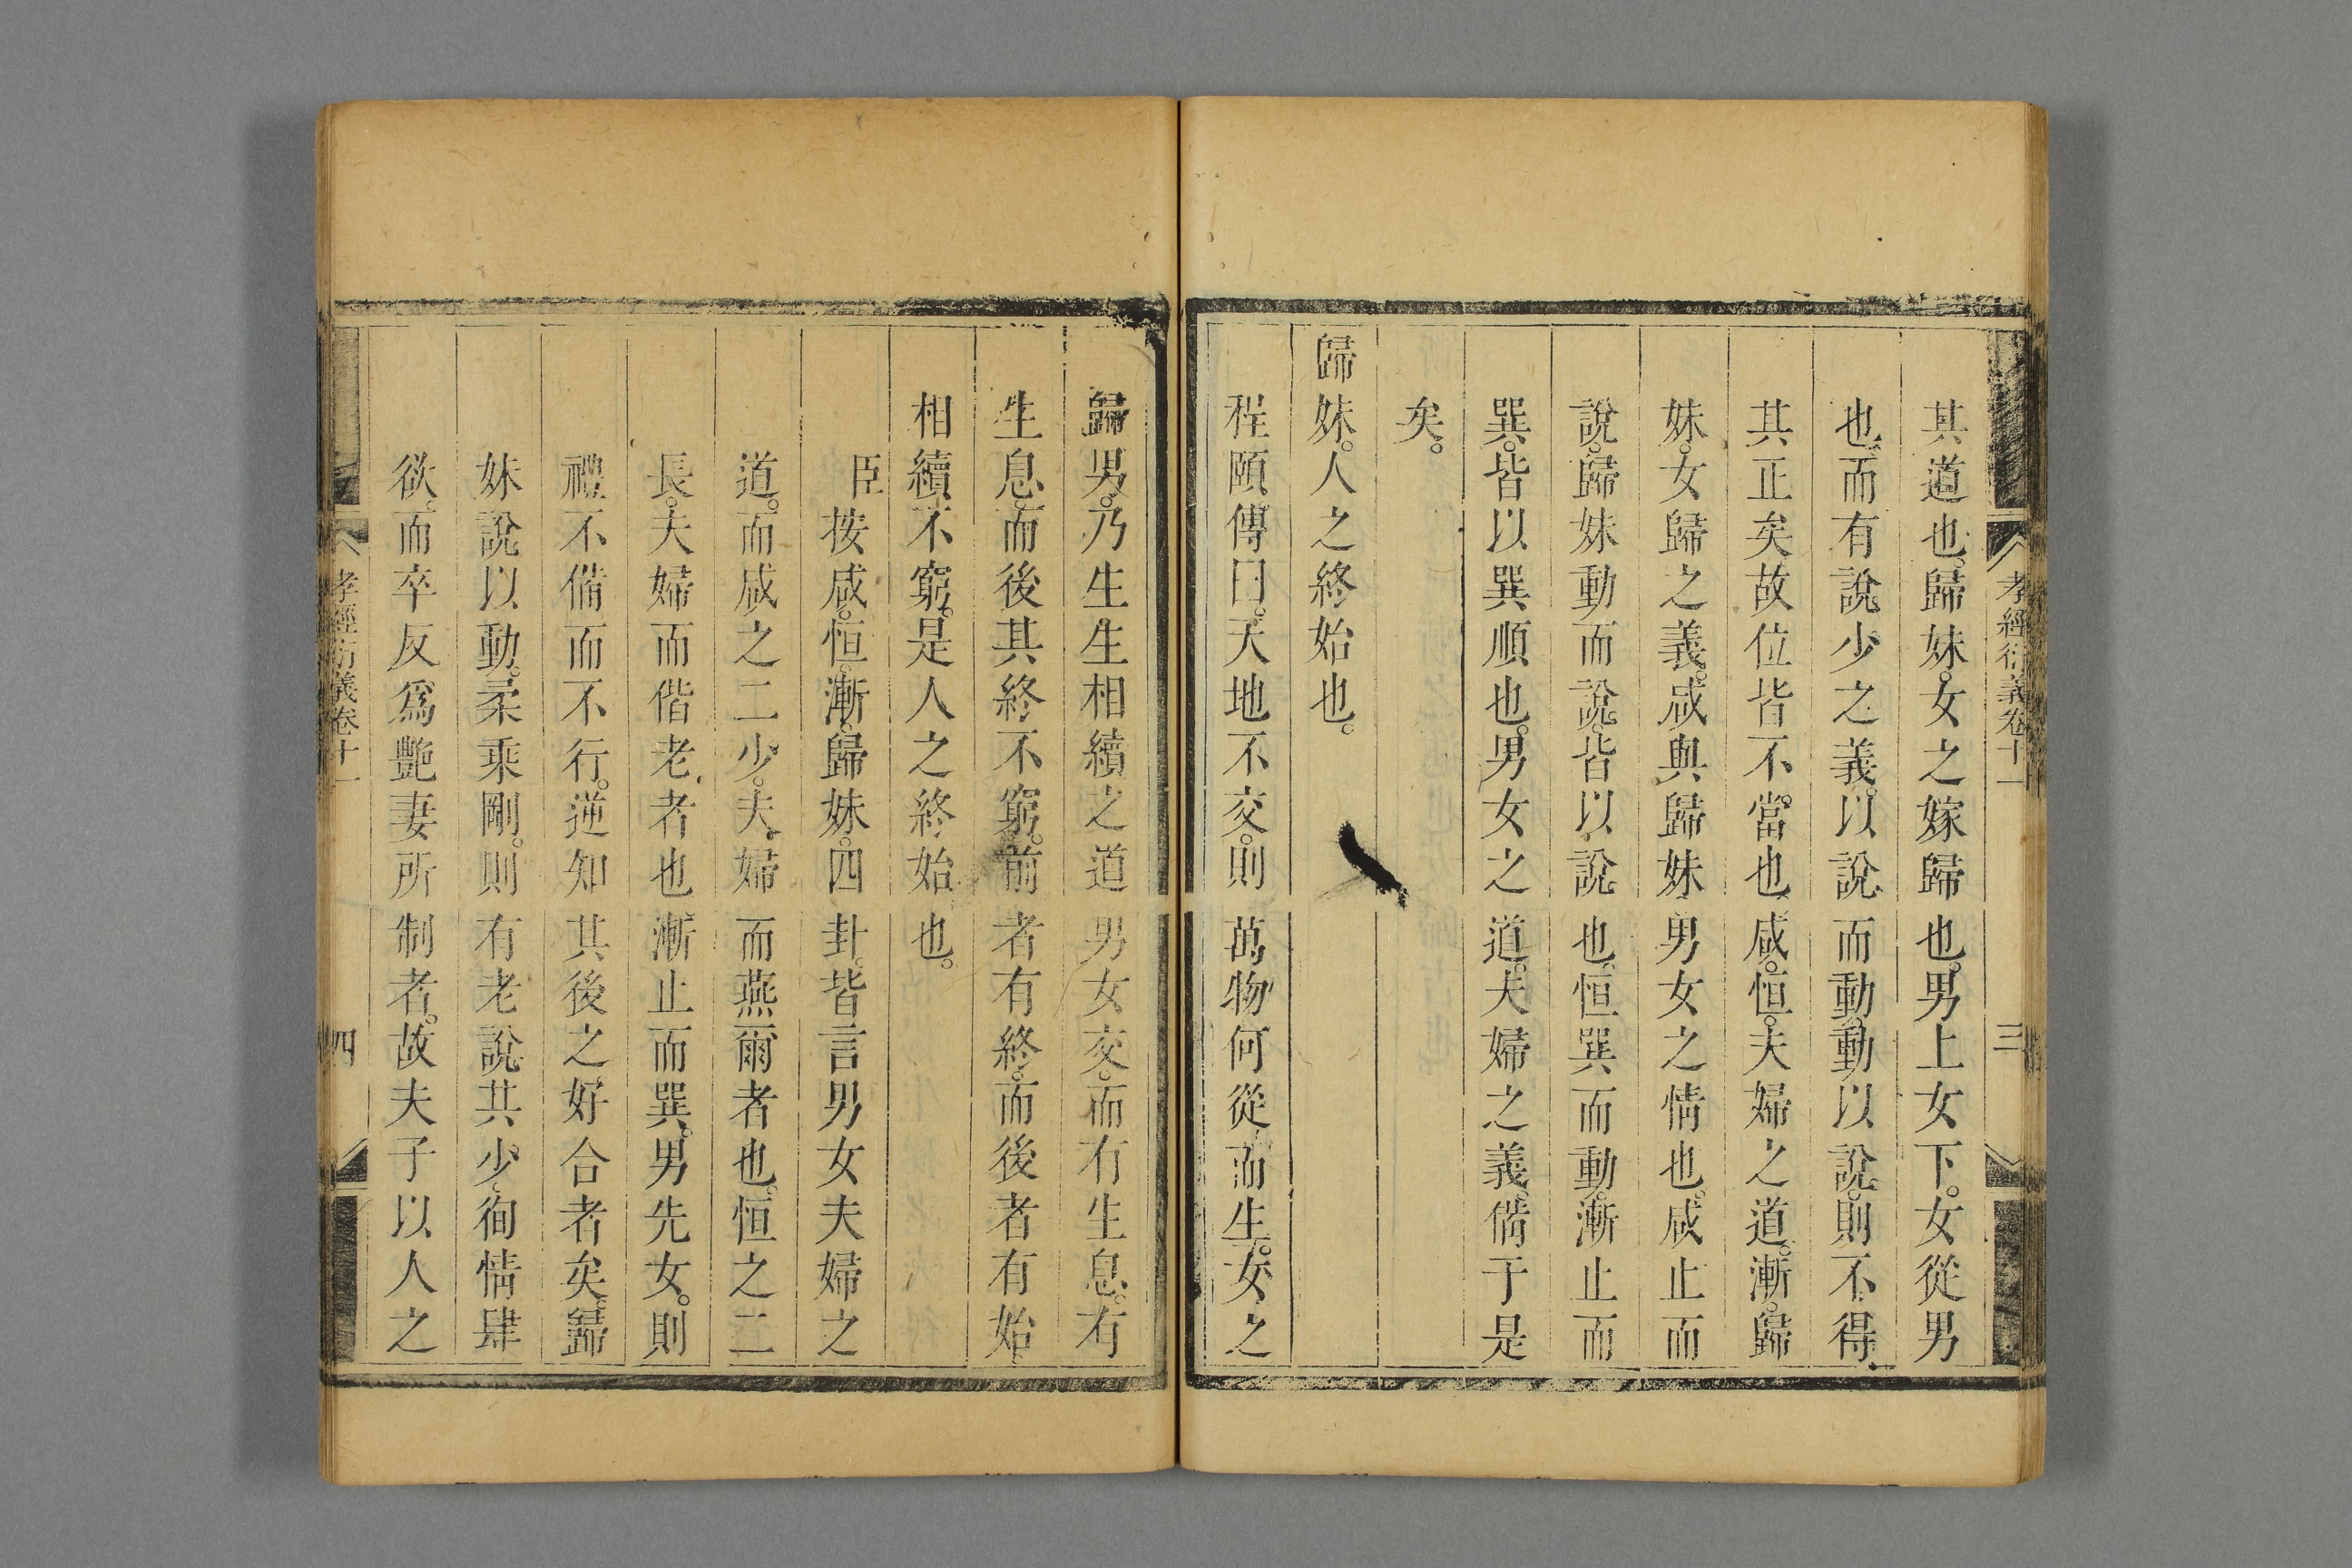 孝經衍義卷十一 三
其道也。歸妹。女之嫁歸也。男上女下。女從男
也。而有說少之義。以說而動。動以說。則不得
其正矣。故位皆不當也。咸。恒。夫婦之道。漸。歸
妹。女歸之義。咸與歸妹。男女之情也。咸止而
說。歸妹動而說。皆以說也。恒巽而動。漸止而
巽。皆以巽順也。男女之道。夫婦之義。備于是
矣。
歸妹。人之終始也。
程頤傳曰。天地不交。則萬物何從而生。女之
歸男。乃生生相續之道。男女交。而有生息。有
生息。而後其終不窮。前者有終。而後者有始。
相續不窮。是人之終始也。
臣按咸。恒。漸。歸妹。四卦。皆言男女夫婦之
道。而咸之二少。夫婦而燕爾者也。恒之二
長。夫婦而偕老者也。漸止而巽。男先女。則
禮不備而不行。逆知其後之好合者矣。歸
妹說以動。柔乘剛。則有老說其少。徇情肆
欲。而卒反爲艷妻所制者。故夫子以人之
孝經衍義卷十一 四